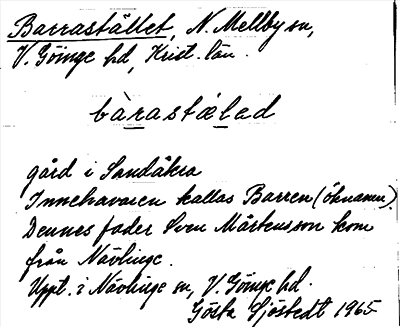 Barrastället, N. Mellby sn,
V. Göinge hd, Krist. län.
bàrastǽlad
gård i Sandåkra
Innehavaren kallas Barren (öknamn).
Dennes fader Sven Mårtensson kom
från Nävlinge.
Uppt. i Nävlinge sn, V. Göinge hd.
Gösta Sjöstedt 1965